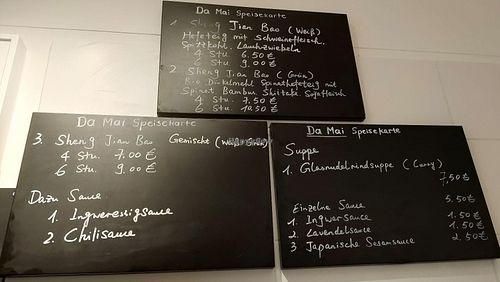 Da Mai Speisekarte
1. Sheng Jian Bao (Weiß)
Hefeteig mit Schweinefleisch,
Spitzkohl, Lauchzwiebeln
4 Stu. 6.50 €
6 Stu. 9.00 €
2. Sheng Jian Bao (Grün)
Bio Dinkelmehl Spinathefeteig mit
Spinat, Bambus, Shitake, Sojafleisch
4 Stu. 7.50 €
6 Stu. 10.50 €
Da Mai Speisekarte
3. Sheng Jian Bao Gemischt (Weiß Grün)
4 Stu. 7.00 €
6 Stu. 9.00 €
Dazu Sauce
1. Ingweressigsauce
2. Chilisauce
Da Mai Speisekarte
Suppe
1. Glasnudelrindsuppe (Curry)
7,50 €
Einzelne Sauce 5.50 €
1. Ingwersauce 1.50 €
2. Lavendelsauce 1.50 €
3 Japanische Sesamsauce 2.50 €